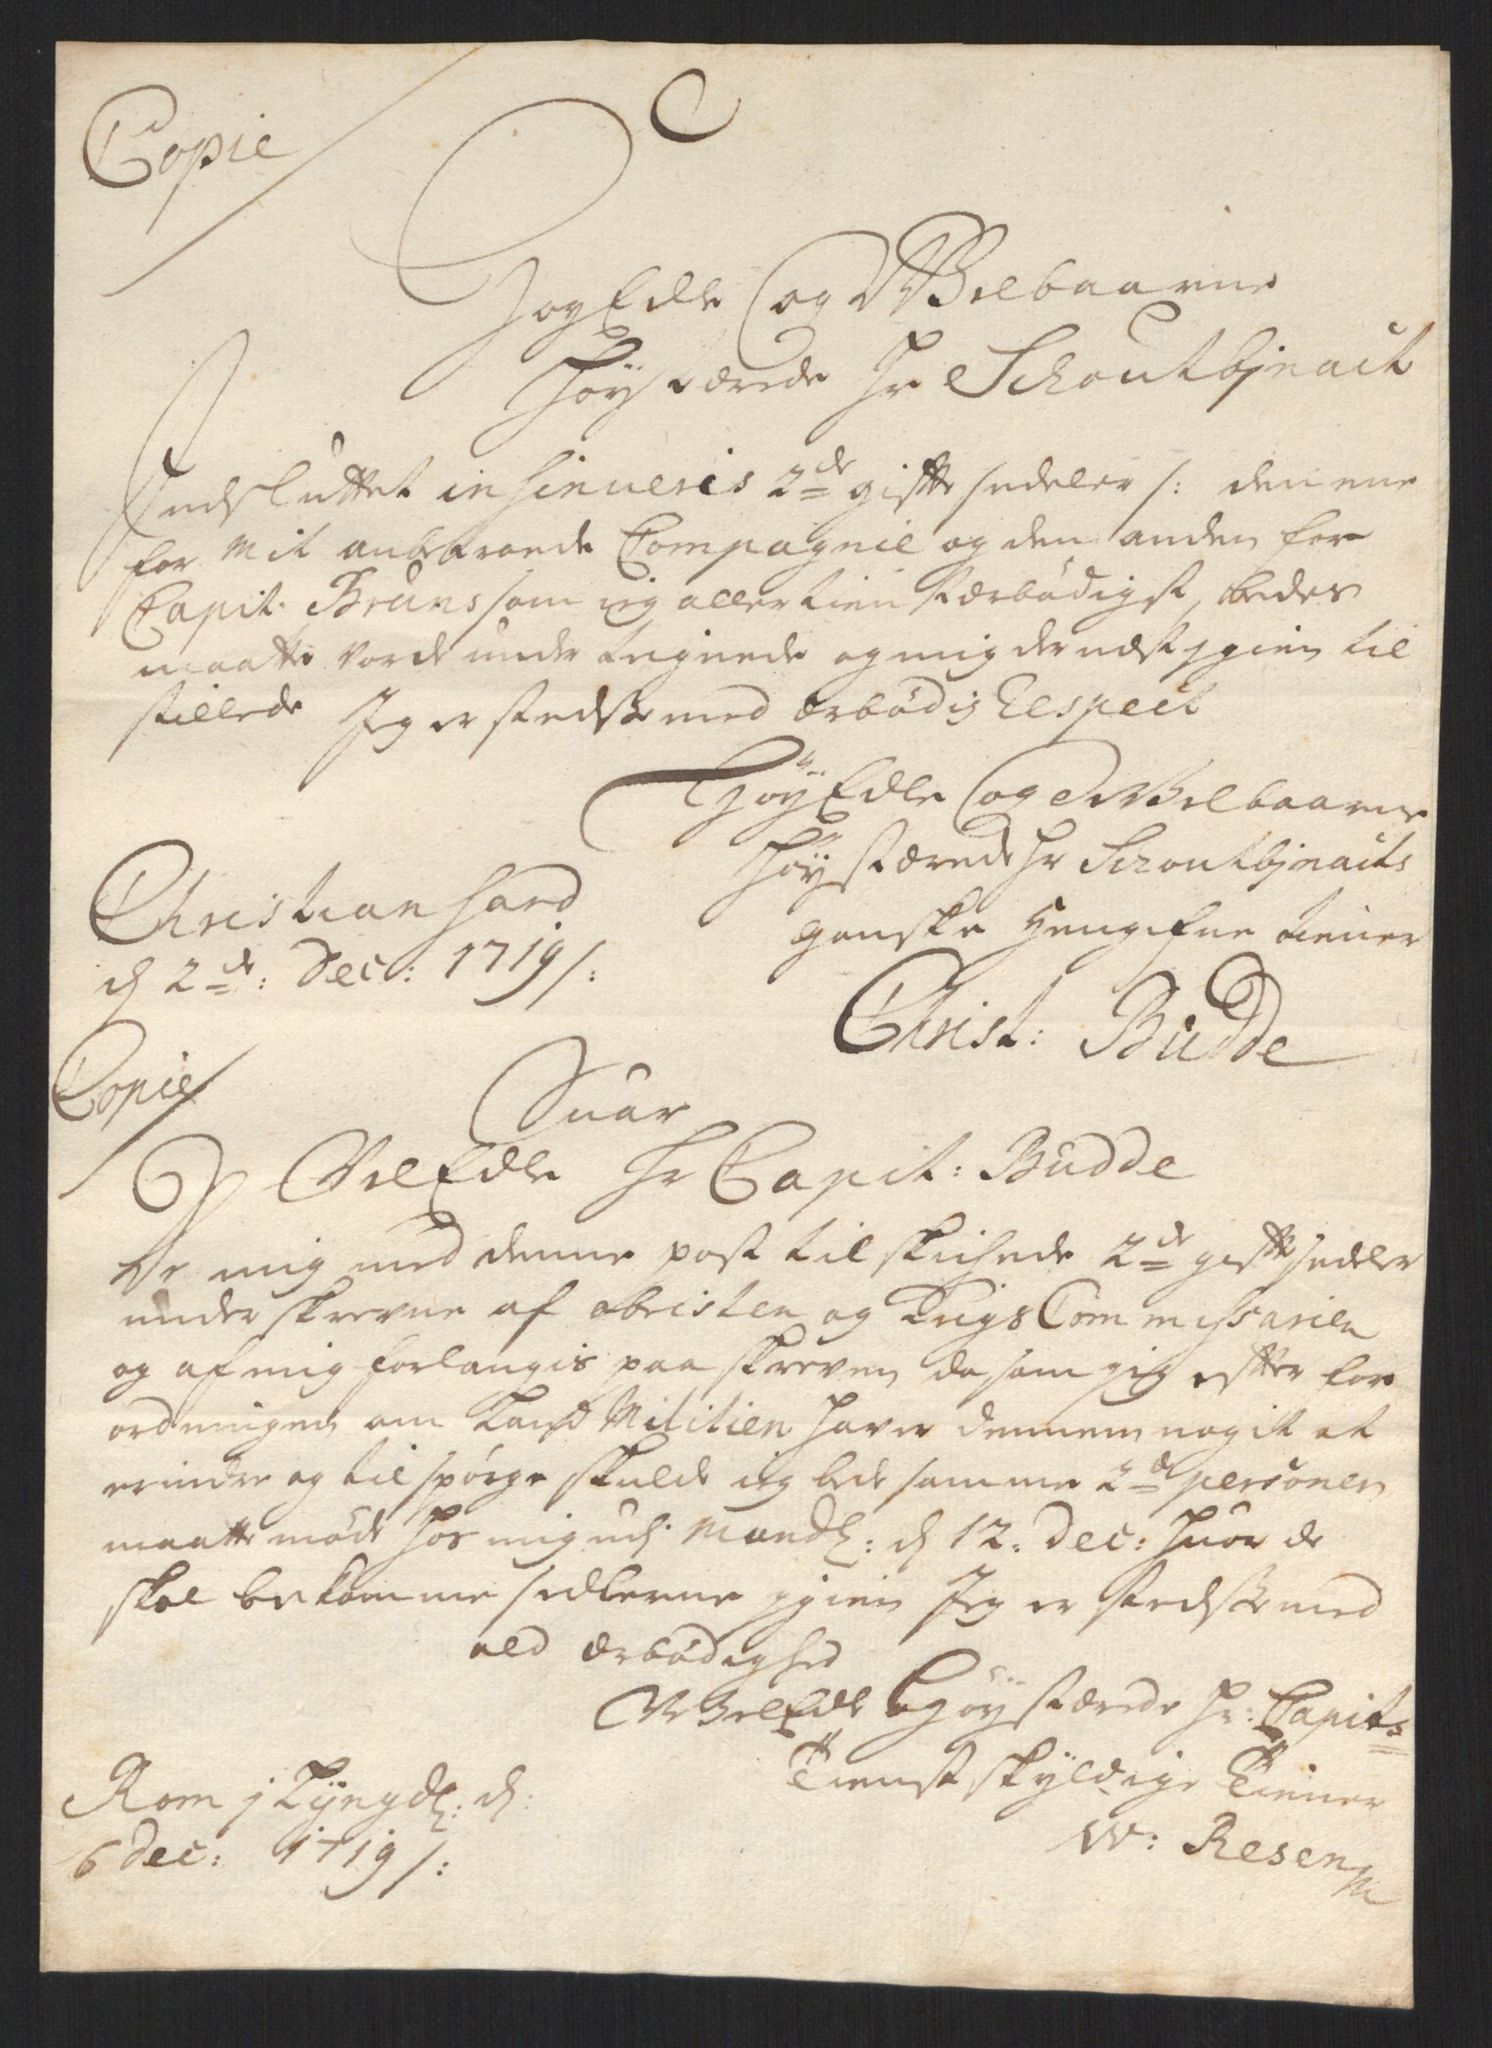 Copie
HøyEdle og Welbaarne
Høystærede Hr Schoutbjnacht
Indsluttet insinueris 2de giftte sedeler /: den ene
for Mit anbetroede Compagnie og den anden for
Capit: Bruns som ieg allertienstærbødigst, bedes
maatte vorde under tegnede og mig der nest igien til
stillede Jeg er stedse med ærbødig Respect
HøyEdle og Welbaarne
Høystærede Hr Schoutbjnachts
ganske Hengifne tiener
Christiansand
d 2de: Dec: 1719/:
Christ: Budde
Copie
Suar
WelEdle Hr Capit: Budde
De mig med denne post tilskichede 2de giftte sedler
underskrevne af obristen og KrigsCommissarien
og af mig forlangis paaskreven da som jeg efter for
ordningen om Land Militien haver dennem nogit at
erindre og tilspørge skulde ieg bede samme 2de personer
maatte møde hos mig udj Mandl: d 12. Dec: huor de
skal bekomme sedlerne igien Jeg er stedse med
ald ærbødighed
WelEdle Høystærede Hr: Capits
Tienstskyldige Tiener
Rom j Lyngdl: d:
6 Dec: 1719/:
W: Resen